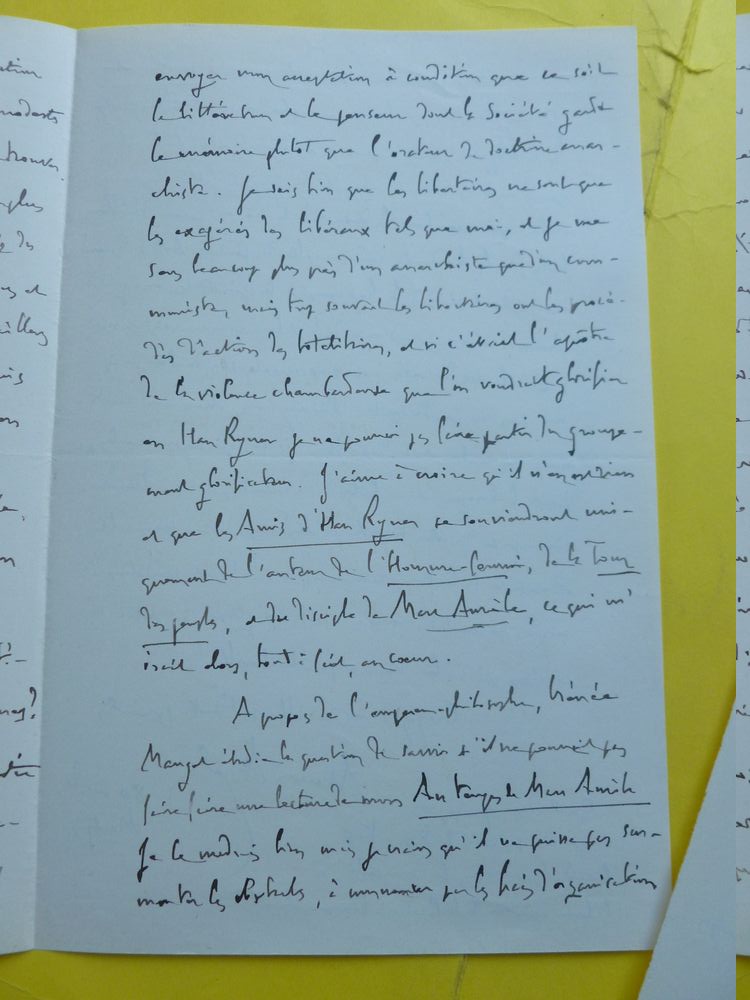 envoyer mon acceptation à condition que ce soit
le littérateur et le penseur dont la Société garde
la mémoire plutôt que l'orateur de doctrine anar-
chiste. Je sais bien que les libertaires ne sont que
les exagérés des libéraux tels que moi, et je me
sens beaucoup plus près d'un anarchiste que d'un com-
muniste, mais trop souvent les libertaires ont les procé-
dés d'action des totalitaires, et si c'était l'apôtre
de la violence chambardeuse que l'on voudrait glorifier
en Han Ryner je ne pourrai pas faire partie du groupe-
ment glorificateur. J'aime à croire qu'il n'en est rien
et que les Amis d'Han Ryner se souviendront uni-
quement de l'auteur de l'Homme-fourmi, de la Tour
des peuples, et du disciple de Marc Aurèle, ce qui m'
irait alors, tout à fait, au coeur.
A propos de l'empereur-philosophe, Irénée
Mauget étudie la question de savoir s'il ne pourrait pas
faire faire une lecture de mon Au temps de Marc Aurèle
Je le voudrais bien mais je crains qu'il ne puisse pas sur-
monter les obstacles, à commencer par les frais d'organisation
tion
modeste
trouver
plus
des
et
?